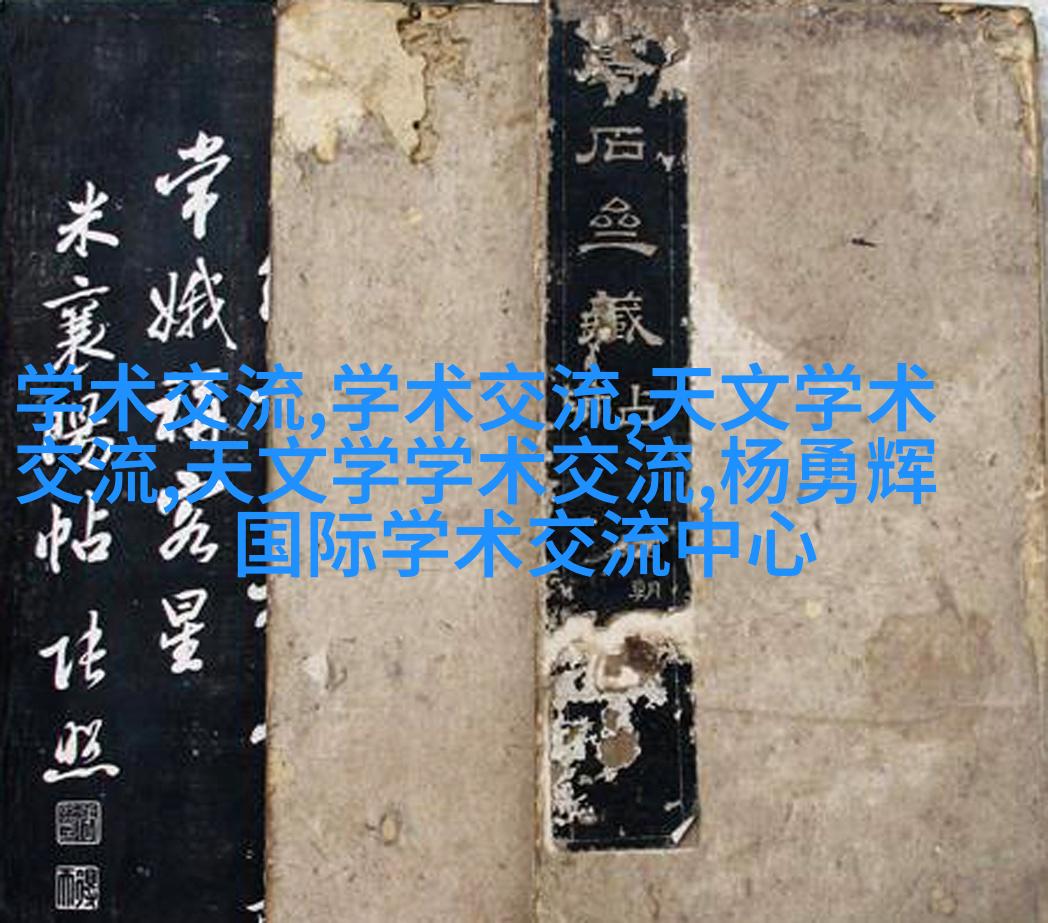 学术交流,学术交流,天文学术
交流,天文学学术交流,杨勇辉
国际学术交流中心
石
藏
朝
常娥稱客星
米襄陽帖 张照